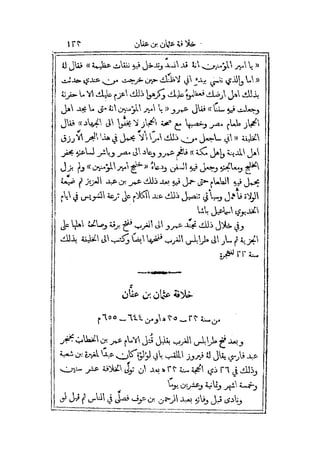 خلافة عثمان بن عفان ١٢٣
« يا امير المؤمنين انهُ قد انسدّ وتدخل فيهِ نفقات عظيمة » فقال لهُ
« اما والذي نفسي بيدهِ اني لاظنك حين خرجت من عندي حدثت
بذلك اهل ارضك فعظموهُ عليك وكرهوا ذلك اعزم عليك الا ما حفرتهُ
وجعلت فيهِ سفنًا » فقال عمرو « يا امير المؤمنين انهُ متى ما يجد اهل
الحجاز طعام مصر وخصبها مع صحة الحجاز لا يخفوا الى الجهاد » فقال
الخليفة « اني ساجعل من ذلك امرًا لا يحمل في هذا البحر الا رزق
اهل المدينة واهل مكة » فاهتم عمرو وعاد الى مصر وباشر لساعتهِ بحفر
الخليج ومعالجتهِ وجعل فيهِ السفن ودعاهُ « خليج امير المؤمنين » ولم يزل
يحمل فيهِ الطعام حتى حمل فيهِ بعد ذلك عمر بن عبد العزيز ثم ضيّعهُ
الولاة فأُهمل وسيأتي تفصيل ذلك عند الكلام على ترعة السويس في ايام
الخديوي اسماعيل باشا
وفي خلال ذلك تجنّد عمرو الى الغرب ففتح برقة وصالحهُ اهلها على
الجزية ثم سار الى طرابلس الغرب ففتحها ايضًا وكتب الى الخليفة بذلك
سنة ٢٢ للهجرة
خلافة عثمان بن عفّان
من سنة ٢٣ — ٣٥ ه او من ٦٤٤ — ٦٥٥ م
وبعد فتح طرابلس الغرب بقليل قُتل الامام عمر بن الخطاب بخنجر
عبد فارسي يقال لهُ فيروز الملقب بابي لؤلؤة كان عبدًا للمغيرة بن شعبة
وذلك في ٢٦ ذي الحجة سنة ٢٣ ه بعد ان تولّى الخلافة عشر سنين
وخمسة اشهر وثمانية وعشرين يومًا
ونادى قبل وفاتهِ بعبد الرحمن بن عوف فصلّى في الناس ثم قيل لهُ